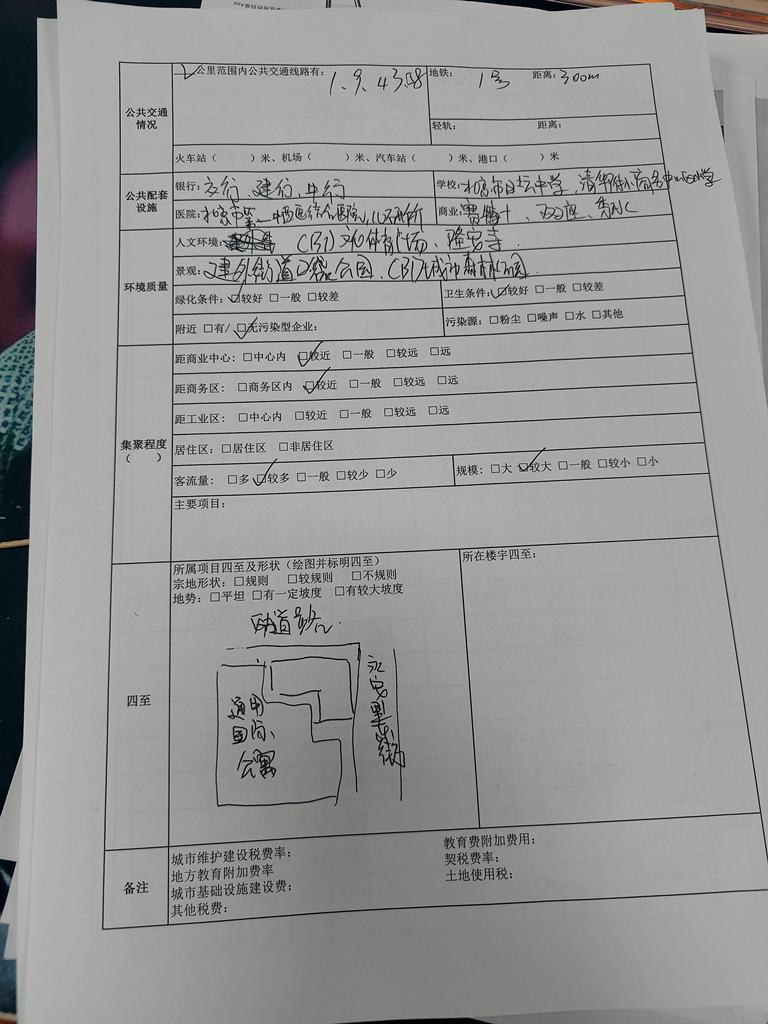 公共交通情况
公里范围内公共交通线路有： 1、9、 地铁： 1号 距离：300m
轻轨： 距离：
火车站（ ）米、机场（ ）米、汽车站（ ）米、港口（ ）米
公共配套设施
银行：交行、建行、中行 学校：北京市日坛中学、清华附小商务中心区小学
医院：北京市第一中西医结合医院 商业：贵友 双子座、秀水
环境质量
人文环境： CBD文化体育广场、隆安寺
景观：建外街道口袋公园、CBD城市森林公园
绿化条件：☑较好 □一般 □较差 卫生条件：☑较好 □一般 □较差
附近 □有/☑无污染型企业： 污染源：□粉尘 □噪声 □水 □其他
集聚程度（ ）
距商业中心：□中心内 ☑较近 □一般 □较远 □远
距商务区：□商务区内 ☑较近 □一般 □较远 □远
距工业区：□中心内 □较近 □一般 □较远 □远
居住区：□居住区 □非居住区
客流量：□多 ☑较多 □一般 □较少 □少 规模：□大 ☑较大 □一般 □较小 □小
主要项目：
四至
所属项目四至及形状（绘图并标明四至） 所在楼宇四至：
宗地形状：□规则 □较规则 □不规则
地势：□平坦 □有一定坡度 □有较大坡度
永安里
街
通用
国际
公寓
备注
城市维护建设税费率： 教育费附加费用：
地方教育附加费率 契税费率：
城市基础设施建设费： 土地使用税：
其他税费：